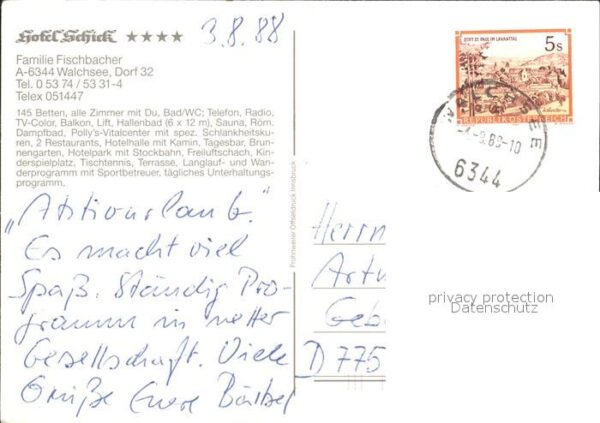 Hotel Schick ★★★★
3.8.88
Familie Fischbacher
A-6344 Walchsee, Dorf 32
Tel. 0 53 74 / 53 31-4
Telex 051447
145 Betten, alle Zimmer mit Du, Bad/WC; Telefon, Radio,
TV-Color, Balkon, Lift, Hallenbad (6 x 12 m), Sauna, Röm.
Dampfbad, Polly's-Vitalcenter mit spez. Schlankheitsku-
ren, 2 Restaurants, Hotelhalle mit Kamin, Tagesbar, Brun-
nengarten, Hotelpark mit Stockbahn, Freiluftschach, Kin-
derspielplatz, Tischtennis, Terrasse, Langlauf- und Wan-
derprogramm mit Sportbetreuer, tägliches Unterhaltungs-
programm.
„Aktivurlaub".
Es macht viel
Spaß. Ständig Pro-
gramm in netter
Gesellschaft. Viele
Grüße Eure Bärbel
Frohnweiler Offsetdruck Innsbruck
STIFT ST. PAUL IM LAVANTTAL
5 S
REPUBLIK ÖSTERREICH
WALCHSEE
6344
Herrn
Artu
Geb
D 775
privacy protection
Datenschutz